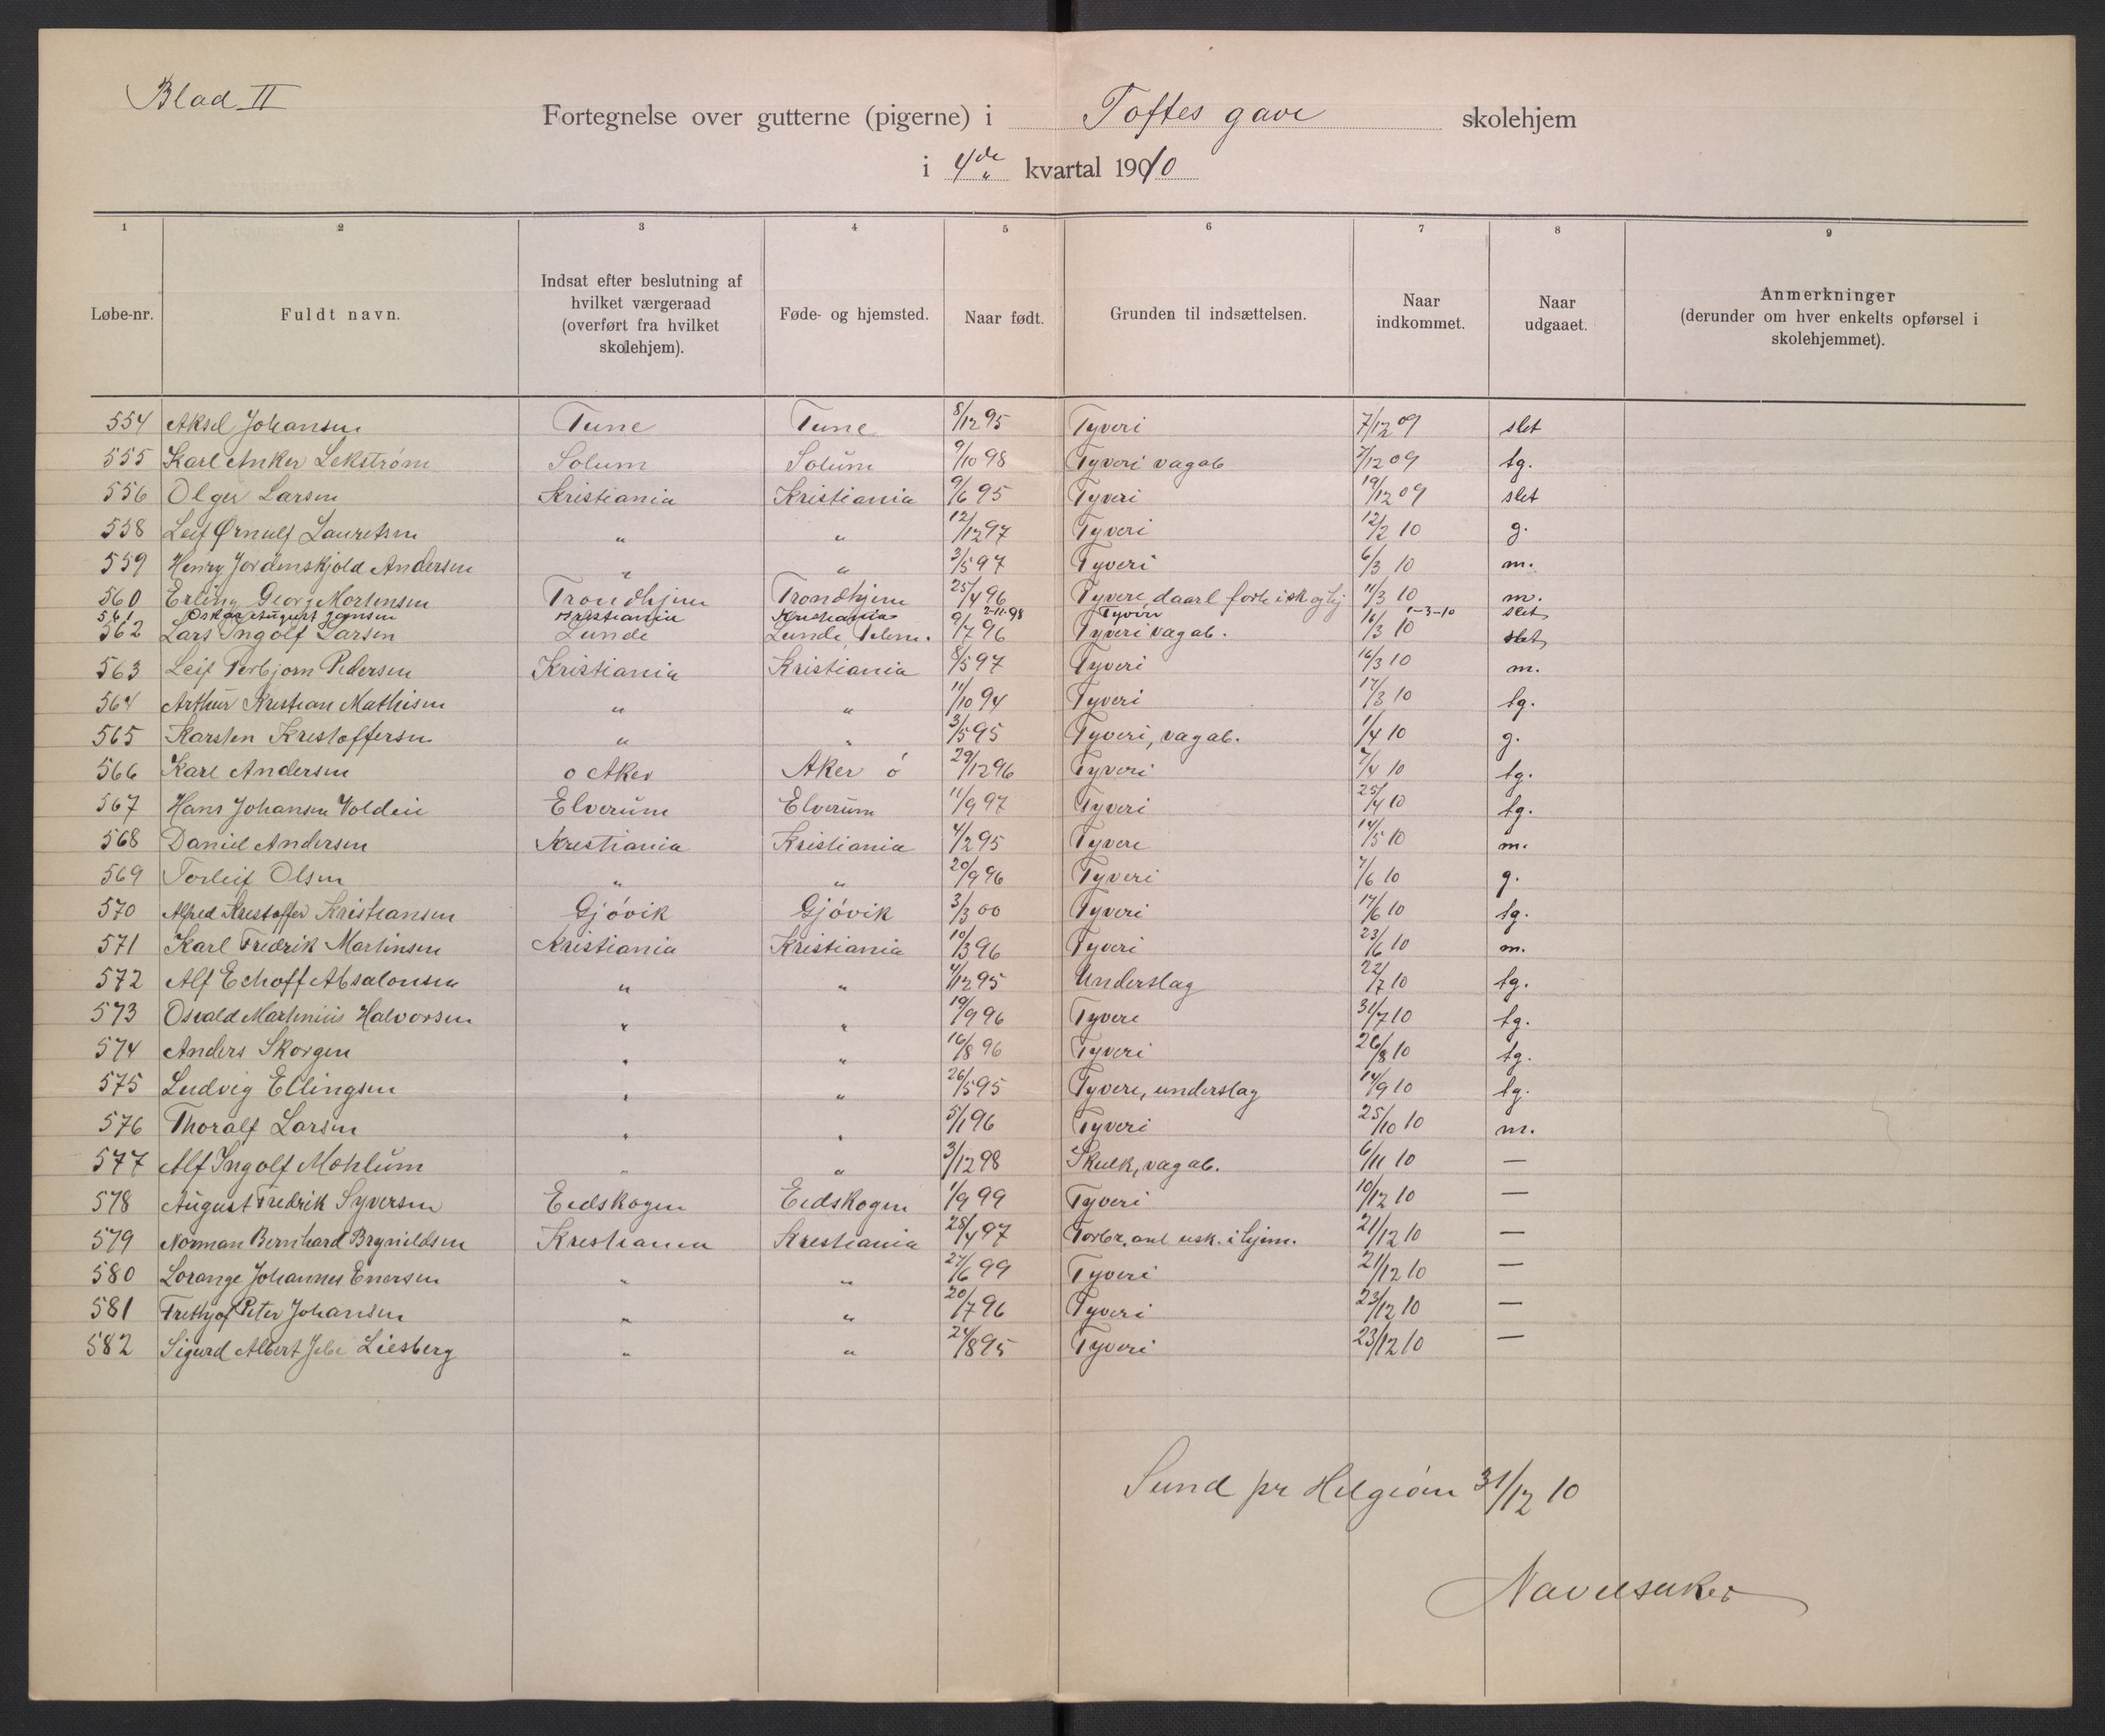 Blad II
Fortegnelse over gutterne (pigerne) i Toftes gave skolehjem
i 4de kvartal 1910
1 2 3 4 5 6 7 8 9
Løbe-nr. Fuldt navn. Indsat efter beslutning af hvilket værgeraad (overført fra hvilket skolehjem). Føde- og hjemsted. Naar født. Grunden til indsættelsen. Naar indkommet. Naar udgaaet. Anmerkninger (derunder om hver enkelts opførsel i skolehjemmet).
554 Aksel Johansen Tune Tune 8/12 95 Tyveri 7/12 09 slet
555 Karl Anker Lekström Solum Solum 9/10 98 Tyveri vagab 7/12 09 tg.
556 Olger Larsen Kristiania Kristiania 9/6 95 Tyveri 19/12 09 slet
558 Leif Ørnulf Lauretsen " " 12/12 97 Tyveri 12/2 10 g.
559 Henry Jordenskjold Andersen " " 3/5 97 Tyveri 6/3 10 m.
560 Erling Georg Mortensen Trondhjem Trondhjem 25/4 96 Tyvere daarl forh i sk og hj 11/3 10 m.
561 Oskar August Jansen Kristiania Kristiania 2-11-98 Tyveri 1-3-10 slet
562 Lars Ingolf Larsen Lunde Lunde Telem. 9/7 96 Tyveri vagab. 16/3 10 slet
563 Leif Torbjorn Pedersen Kristiania Kristiania 8/5 97 Tyveri 16/3 10 m.
564 Arthur Kristian Mathisen " " 11/10 94 Tyveri 17/3 10 tg.
565 Karsten Kristoffersen " " 3/5 95 Tyveri, vagab. 1/4 10 g.
566 Karl Andersen ö Aker Aker ö 29/12 96 Tyveri 7/4 10 tg.
567 Hans Johansen Volden Elverum Elverum 11/9 97 Tyveri 25/4 10 tg.
568 Daniel Andersen Kristiania Kristiania 4/2 95 Tyvere 14/5 10 m.
569 Torleif Olsen " " 20/9 96 Tyveri 7/6 10 g.
570 Alfred Kristoffer Kristiansen Gjövik Gjövik 3/3 00 Tyveri 17/6 10 tg.
571 Karl Fredrik Martinsen Kristiania Kristiania 10/3 96 Tyveri 23/6 10 m.
572 Alf Echoff Absalonsen " " 4/12 95 Underslag 22/7 10 tg.
573 Osvald Martinius Halvorsen " " 19/9 96 Tyvere 31/7 10 tg.
574 Anders Skorgen " " 16/8 96 Tyveri 26/8 10 tg.
575 Ludvig Ellingsen " " 26/5 95 Tyvere, underslag 14/9 10 tg.
576 Thoralf Larsen " " 5/1 96 Tyveri 25/10 10 m.
577 Alf Ingolf Mohlum " " 3/12 98 Skulk, vagab. 6/11 10 —
578 August Fredrik Syversen Eidskogen Eidskogen 1/9 99 Tyveri 10/12 10 —
579 Norman Bernhard Brynildsen Kristiania Kristiania 28/4 97 Forbr. anl usk. i hjem. 21/12 10 —
580 Lorange Johannes Enersen " " 27/6 99 Tyveri 21/12 10 —
581 Frethjof Peter Johansen " " 20/7 96 Tyveri 23/12 10 —
582 Sigurd Albert Liesberg " " 24/8 95 Tyveri 23/12 10 —
Sund pr Helgöen 31/12 10